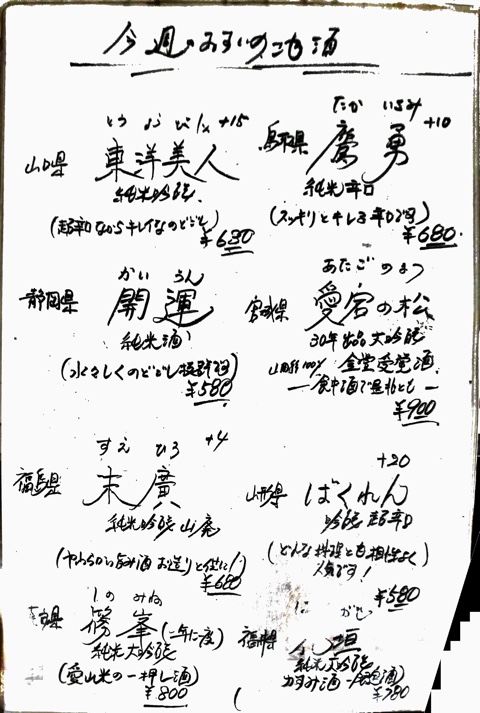 今週のおすすめ地酒
とうようびじん +15
山口県 東洋美人
純米吟醸
(超辛口ながらキレイなのどごし)
¥680
たか いさみ +10
鳥取県 鷹勇
純米辛口
(スッキリとキレる辛口です)
¥680
かい うん
静岡県 開運
純米酒
(水々しくのどごし
¥580
あたごのまつ
宮城県 愛宕の松
30年出品大吟醸
山田錦100% 金賞受賞酒
食中酒で
¥900
すえ ひろ +4
福島県 末廣
純米吟醸 山廃
旨み酒 お造りと
¥680
+20
山形県 ばくれん
吟醸 超辛口
(どんな料理とも相性よく
人気です!
¥580
しの みね
県 篠峯 (二年に一度)
純米大吟醸
(愛山米の一押し酒)
¥800
がき
福井県 垣
純米大吟醸
かすみ酒
¥780